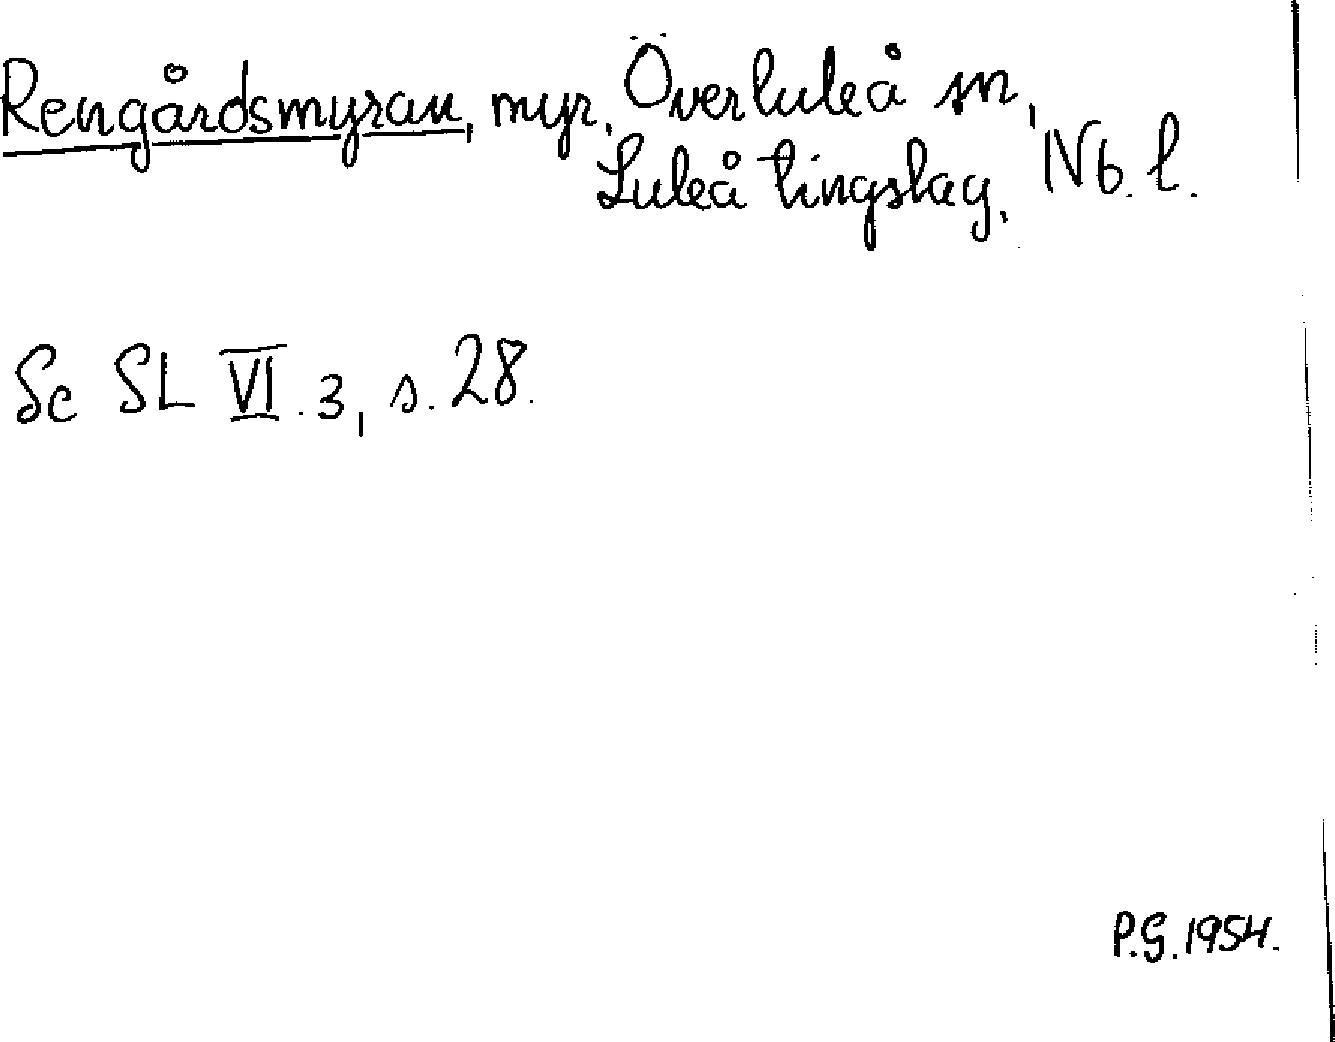 Rengårdsmyran, myr, Överluleå sn,
Luleå tingslag, Nb. l.
Sc SL VI.3, s. 28.
P.G. 1954.